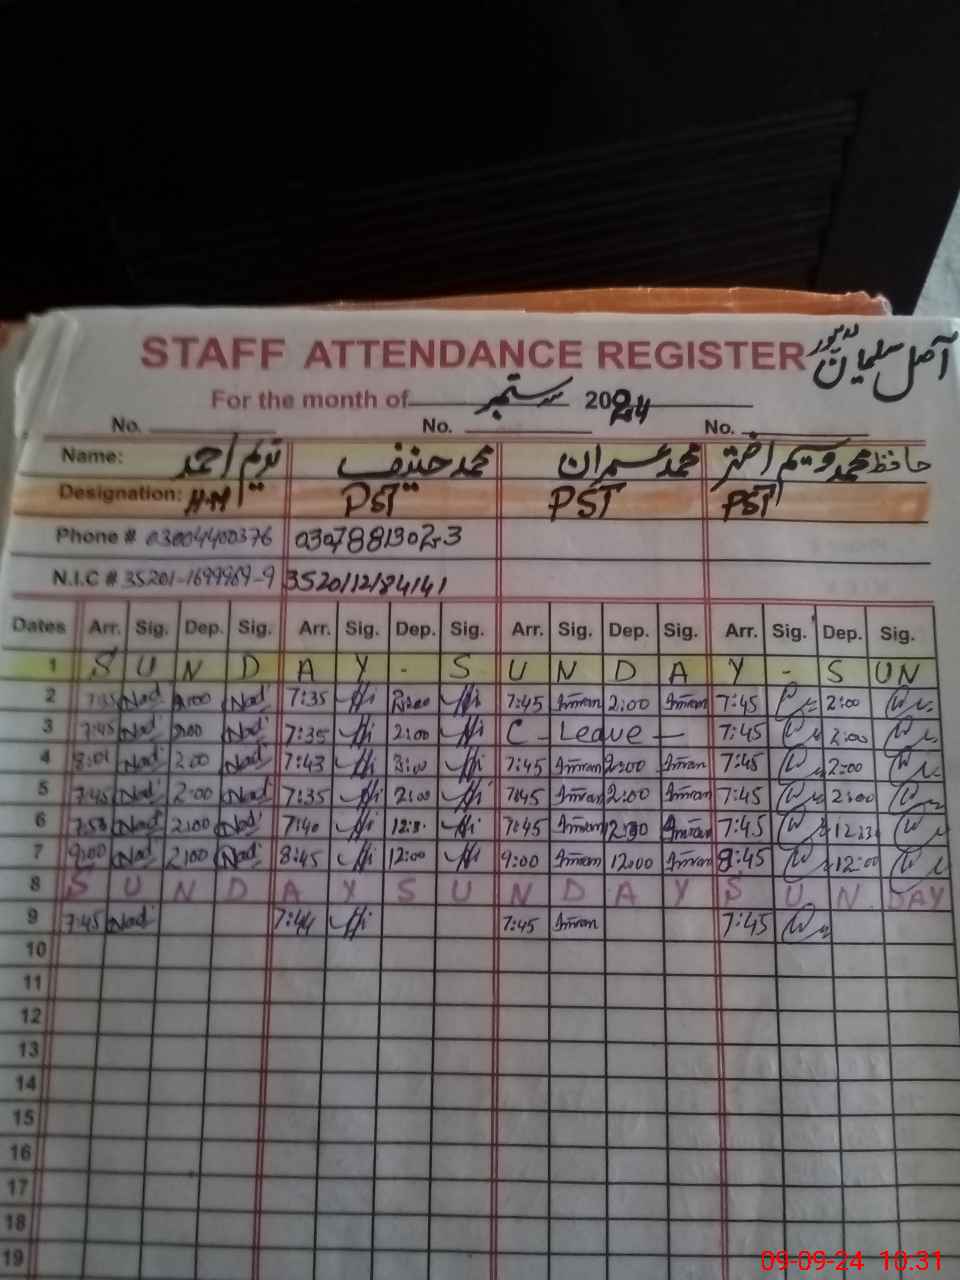 STAFF ATTENDANCE REGISTER آصل سلیمان
For the month of ستمبر 2024
No. No. No.
Name: ندیم احمد محمد حنیف محمد عمران حافظ محمد وسیم اختر
Designation: H.M PST PST PST
Phone # 03004400376 03078813023
N.I.C # 35201-1699969-9 3520112184141
Dates Arr. Sig. Dep. Sig. Arr. Sig. Dep. Sig. Arr. Sig. Dep. Sig. Arr. Sig. Dep. Sig.
1 S U N D A Y - S U N D A Y - S UN
2 7:35 Nad 2:00 Nad 7:35 2:00 7:45 Imran 2:00 Imran 7:45 2:00
3 7:45 Nad 2:00 Nad 7:35 2:00 C - Leave - 7:45 2:00
4 8:01 Nad 2:00 Nad 7:43 2:00 7:45 Imran 2:00 Imran 7:45 2:00
5 7:45 Nad 2:00 Nad 7:35 2:00 7:45 Imran 2:00 Imran 7:45 2:00
6 7:50 Nad 2:00 Nad 7:40 12:3 7:45 Imran 12:30 Imran 7:45 12:30
7 9:00 Nad 2:00 Nad 8:45 12:00 9:00 Imran 12:00 Imran 8:45 12:00
8 S U N D A Y S U N D A Y S U N DAY
9 7:45 Nad 7:44 7:45 Imran 7:45
10
11
12
13
14
15
16
17
18
19
09-09-24 10:31